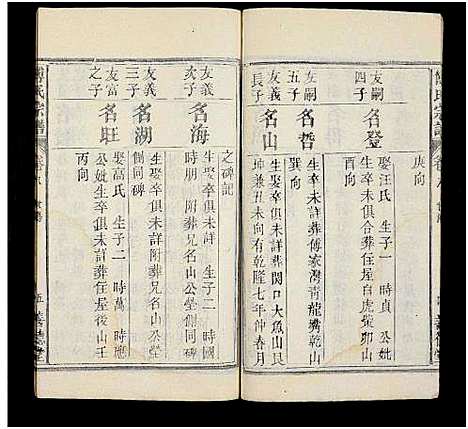 庚向
友嗣
四子
名登
娶汪氏 生子一 時貞 公妣
生卒未俱合葬住屋白虎嘴卯山
友嗣
五子
名哲
生卒未詳葬傅家灣青龍嘴乾山
巽向
友義
長子
名山
生卒俱未詳葬閔口大魚山艮
坤兼丑未向有乾隆七年仲春月
之碑記
友義
次子
名海
生卒俱未詳 生子二 時國
時朋 附葬兄名山公塋側同碑
友義
三子
名湖
生卒俱未詳附葬兄名山公塋
側同碑
友富
之子
名旺
娶高氏 生子二 時萬 時應
公妣生卒俱未詳葬住屋後山壬
丙向
氏宗譜
五